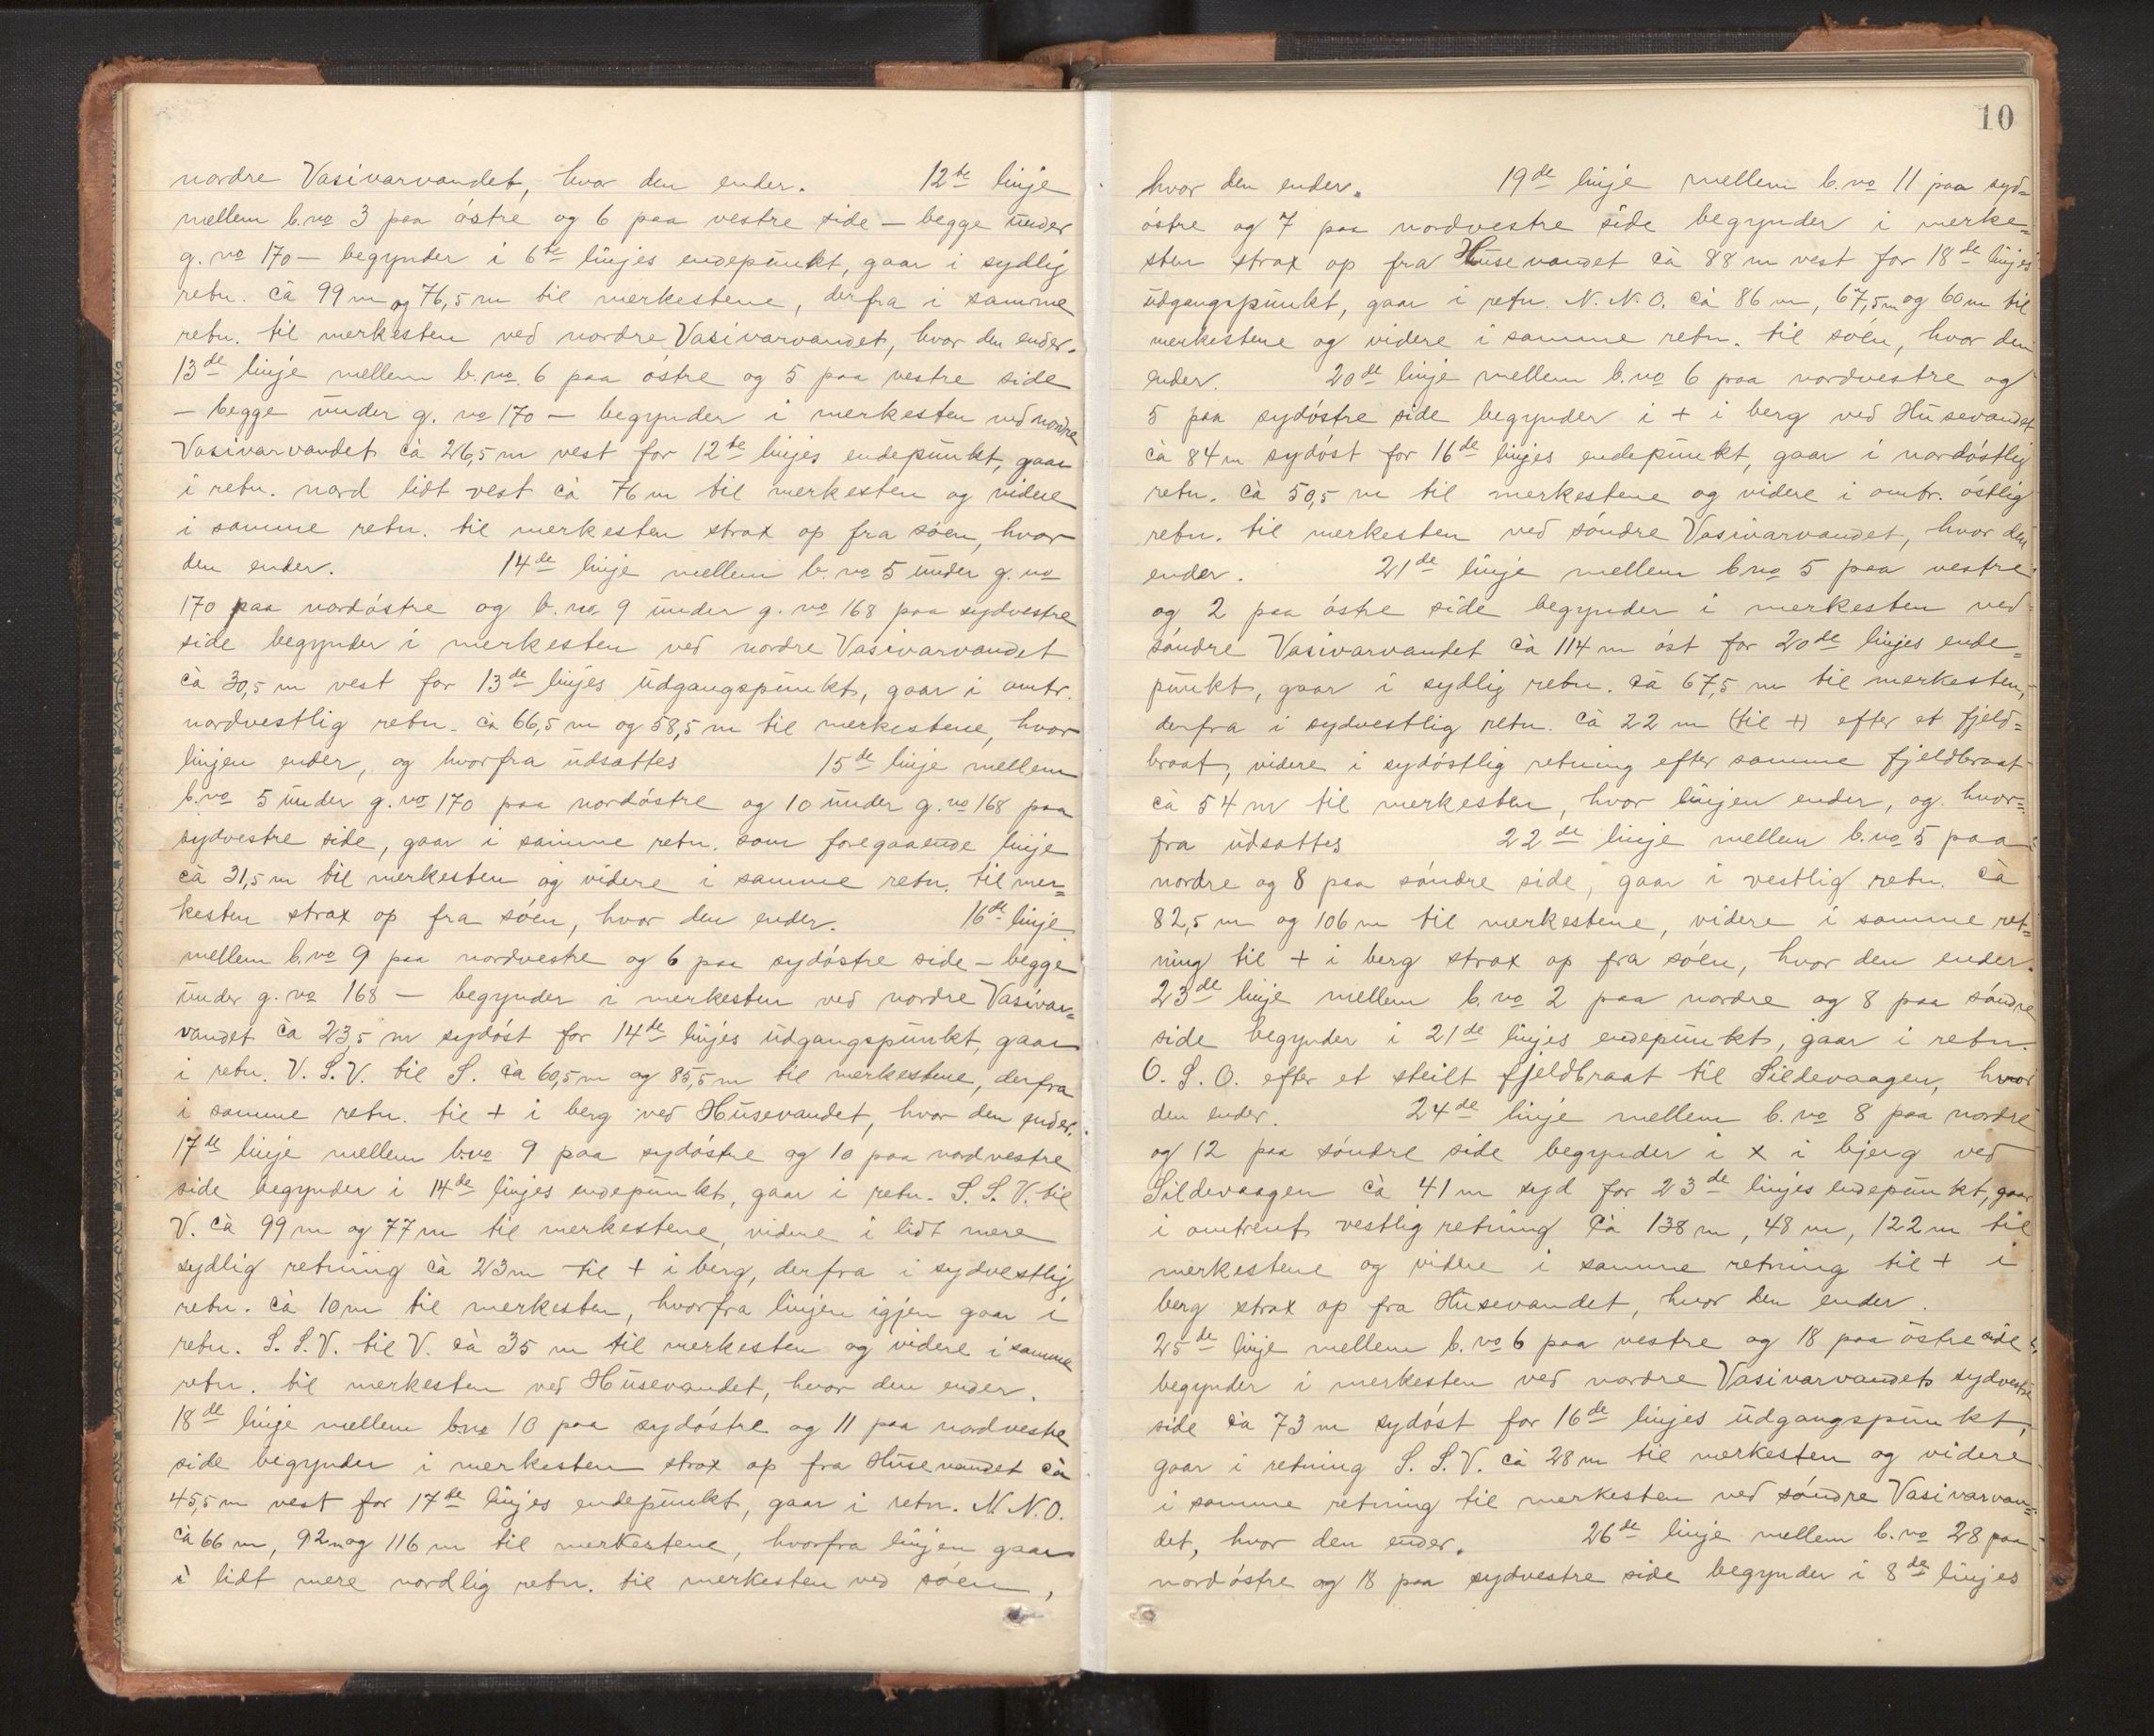 nordre Vasivarvandet, hvor den ender. 12te linje
mellem b.no 3 paa östre og 6 paa vestre side – begge under
g. no 170 – begynder i 6te linjes endepunkt, gaar i sydlig
retn. cà 99 m og 76,5 m til merkestene, derfra i samme
retn. til merkesten ved nordre Vasivarvandet, hvor den ender.
13de linje mellem b. no. 6 paa östre og 5 paa vestre side
– begge under g. no 170 – begynder i merkesten ved nordre
Vasivarvandet cà 26,5 m vest for 12te linjes endepunkt, gaar
i retn. nord lidt vest cà 76 m til merkesten og videre
i samme retn. til merkesten strax op fra söen, hvor
den ender. 14de linje mellem b. no 5 under g. no
170 paa nordöstre og b. no 9 under g. no 168 paa sydvestre
side begynder i merkesten ved nordre Vasivarvandet
cà 30,5 m vest for 13de linjes udgangspunkt, gaar i omtr.
nordvestlig retn. cà 66,5 m og 58,5 m til merkestene, hvor
linjen ender, og hvorfra udsattes 15de linje mellem
b. no 5 under g. no 170 paa nordöstre og 10 under g. no 168 paa
sydvestre side, gaar i samme retn. som foregaaende linje
cà 31,5 m til merkesten og videre i samme retn. til mer=
kesten strax op fra söen, hvor den ender. 16de linje
mellem b. no 9 paa nordvestre og 6 paa sydöstre side – begge
under g. no 168 – begynder i merkesten ved nordre Vasivar=
vandet cà 23,5 m sydöst for 14de linjes udgangspunkt, gaar
i retn. V. S. V. til S. cà 60,5 m og 85,5 m til merkestene, derfra
i samme retn. til + i berg ved Husevandet, hvor den ender.
17de linje mellem b.no 9 paa sydöstre og 10 paa nordvestre
side begynder i 14de linjes endepunkt, gaar i retn. S. S. V. til
V. cà 99 m og 77 m til merkestene, videre i lidt mere
sydlig retning cà 23 m til + i berg, derfra i sydvestlig
retn. cà 10 m til merkesten, hvorfra linjen igjen gaar i
retn. S. S. V. til V. cà 35 m til merkesten og videre i samme
retn. til merkesten ved Husevandet, hvor den ender.
18de linje mellem b.no 10 paa sydöstre og 11 paa nordvestre
side begynder i merkesten strax op fra Husevandet cà
45,5 m vest for 17de linjes endepunkt, gaar i retn. N. N. O.
cà 66 m, 92 m og 116 m til merkestene, hvorfra linjen gaar
i lidt mere nordlig retn. til merkesten ved söen,
10
hvor den ender. 19de linje mellem b. no 11 paa syd=
östre og 7 paa nordvestre side begynder i merke=
sten strax op fra Husevandet cà 88 m vest for 18de linjes
udgangspunkt, gaar i retn. N. N. O. cà 86 m, 67,5 m og 60 m til
merkestene og videre i samme retn. til söen, hvor den
ender. 20de linje mellem b. no 6 paa nordvestre og
5 paa sydöstre side begynder i + i berg ved Husevandet
cà 84 m sydöst for 16de linjes endepunkt, gaar i nordöstlig
retn. cà 50,5 m til merkestene og videre i omtr. östlig
retn. til merkesten ved söndre Vasivarvandet, hvor den
ender. 21de linje mellem b no 5 paa vestre
og 2 paa östre side begynder i merkesten ved
söndre Vasivarvandet cà 114 m öst for 20de linjes ende=
punkt, gaar i sydlig retn. cà 67,5 m til merkesten,
derfra i sydvestlig retn. cà 22 m (til +) efter et fjeld=
braat, videre i sydöstlig retning efter samme fjeldbraat
cà 54 m til merkesten, hvor linjen ender, og hvor=
fra udsattes 22de linje mellem b. no 5 paa
nordre og 8 paa söndre side, gaar i vestlig retn. cà
82,5 m og 106 m til merkestene, videre i samme ret=
ning til + i berg strax op fra söen, hvor den ender.
23de linje mellem b. no 2 paa nordre og 8 paa söndre
side begynder i 21de linjes endepunkt, gaar i retn.
O. S. O. efter et steilt fjeldbraat til Sildevaagen, hvor
den ender. 24de linje mellem b. no 8 paa nordre
og 12 paa söndre side begynder i x i bjerg ved
Sildevaagen cà 41 m syd for 23de linjes endepunkt, gaar
i omtrent vestlig retning cà 138 m, 48 m, 122 m til
merkestene og videre i samme retning til + i
berg strax op fra Husevandet, hvor den ender.
25de linje mellem b. no 6 paa vestre og 18 paa östre side
begynder i merkesten ved nordre Vasivarvandets sydvestre
side cà 73 m sydöst for 16de linjes udgangspunkt,
gaar i retning S. S. V. cà 28 m til merkesten og videre
i samme retning til merkesten ved söndre Vasivarvan=
det, hvor den ender. 26de linje mellem b. no 28 paa
nordöstre og 18 paa sydvestre side begynder i 8de linjes